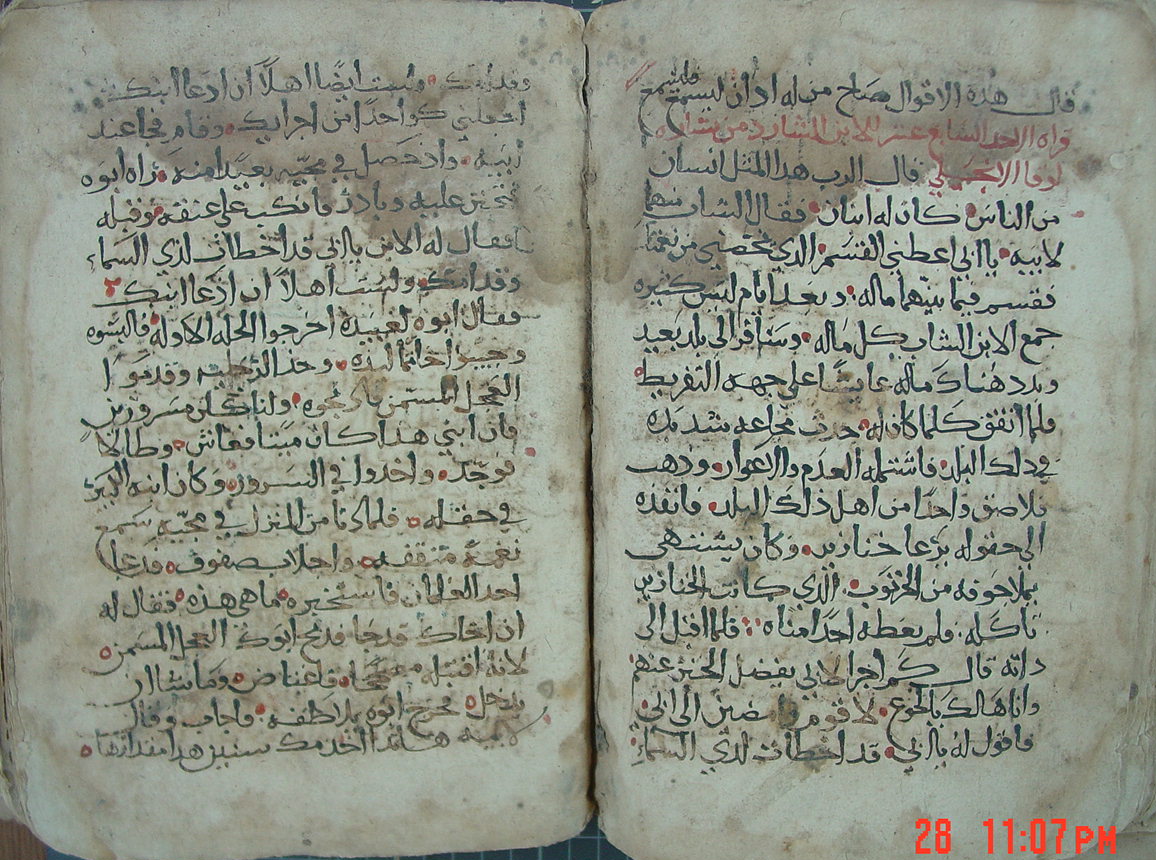 قال هذه الاقوال صاح من له ادان ليسمع فليسمع
قراه الاحد السابع عشر للابن الشارد من بشاره
لوقا الانجيلي قال الرب هدا المثل انسان
من الناس كان له ابنان فقال الشاب منهما
لابيه يا ابي اعطني القسم الذي يخصني من نعمتك
فقسم فيما بينهما ماله وبعد ايام ليس كثيره
جمع الابن الشاب كل ماله وسافر الى بلد بعيد
وبدد هناك ماله عايشا على جهه التفريط
فلما انفق كلما كان له حدث مجاعه شديده
في دلك البلد فاشتمله العدم والاعواز ودهب
فلاصق واحدا من اهل ذلك البلد فانفذه
الى حقوله يرعا خنازير وكان يشتهي
يملا جوفه من الخرنوب الذي كانت الخنازير
تاكله فلم يعطه احدا مناه فلما اقبل الى
داته قال كم اجرا لابي يفضل الخبز عنهم
وانا هالك بالجوع لاقوم فامضين الى ابي
فاقول له يا ابي قد اخطات لدي السماء
وقدامك ولست ايضا اهلا ان ادعا ابنك
اجعلني كواحدا من اجرايك وقام فجا عند
ابيه واذ حصل في مجيه بعيدا منه راه ابوه
فتحنن عليه وبادر فانكب على عنقه وقبله
فقال له الابن يا ابي قد اخطات لدي السماء
وقدامك ولست اهلا ان ادعا ابنك
فقال ابوه لعبيده اخرجوا الحله الاوله فالبسوه
وصيروا خاتما ليده وحذا لرجليه وقدموا
العجل المسمن فادبحوه ولناكلن مسرورين
فان ابني هدا كان ميتا فعاش وضالا
فوجد واخدوا في السرور وكان ابنه الكبير
في حقله فلما دنا من المنزل في مجيه سمع
نغمة متفقه واجلاب صفوف فدعا
احد الغلمان فاستخبره ما هي هذه فقال له
ان اخاك قدجا فدبح ابوك العجل المسمن
لانه اقتبله معافا فاغتاض وما شاان
يدخل فخرج ابوه يلاطفه فاجاب وقال
لابيه هاندا اخدمك سنين هدا مقدارها
28 11:07 PM